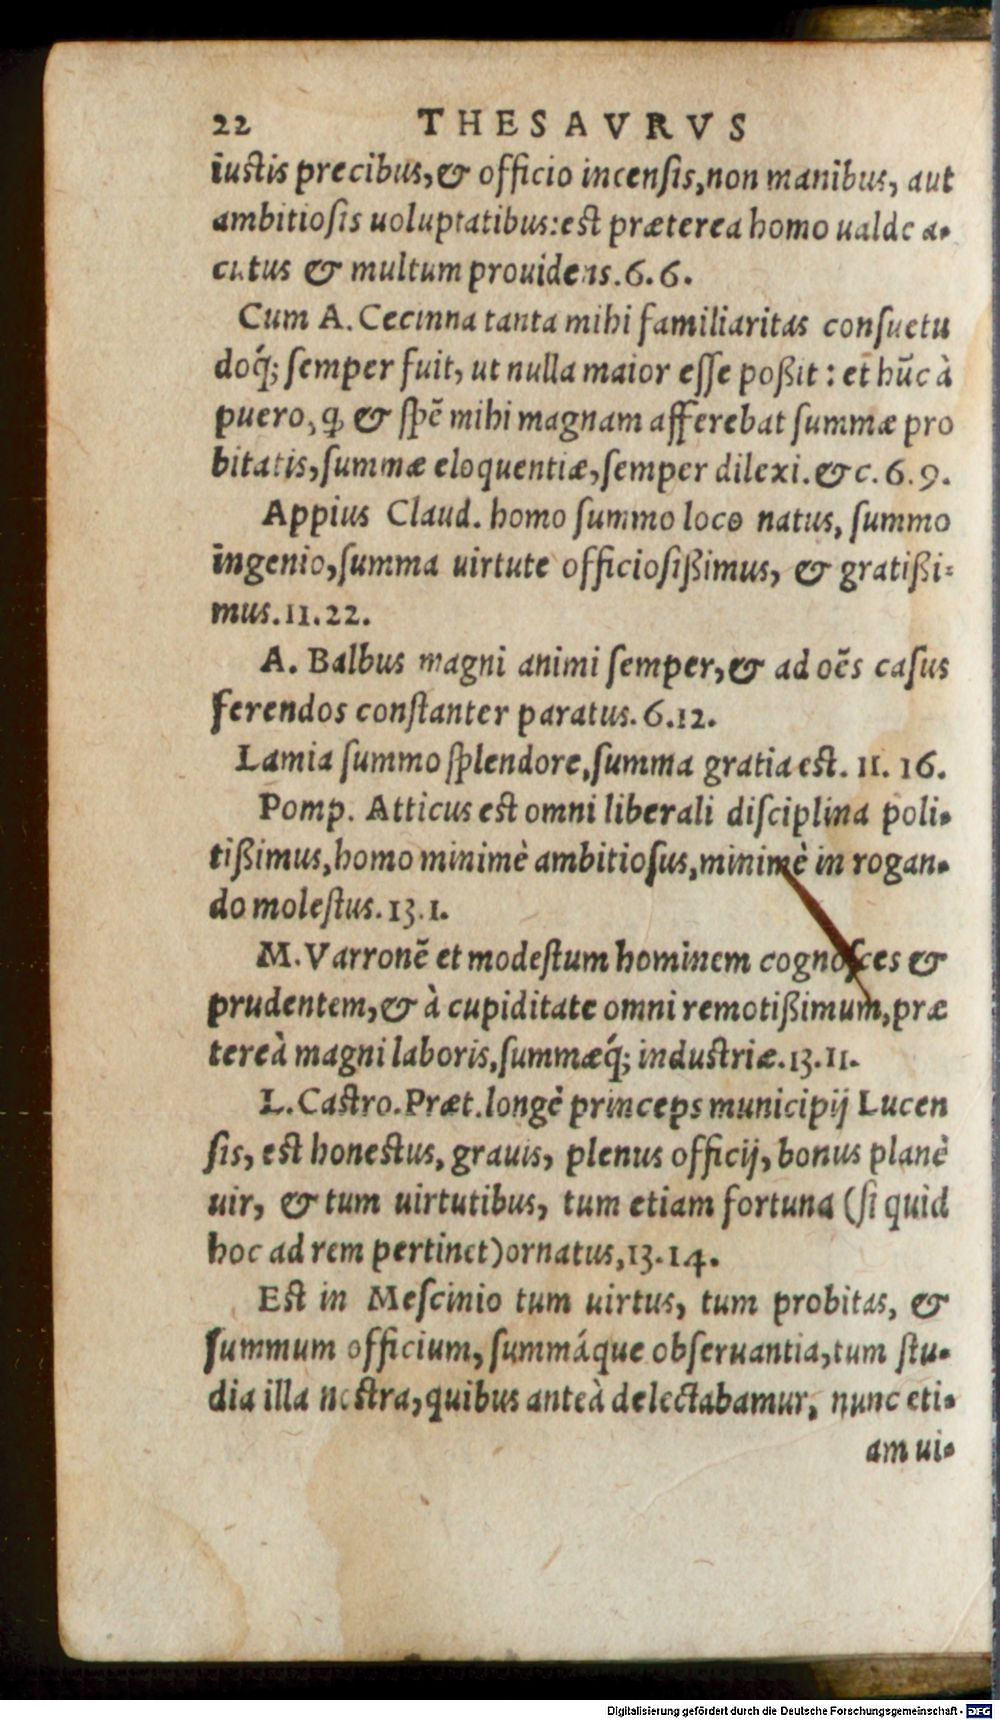 22 THESAVRVS
iustis precibus,& officio incensis,non manibus, aut
ambitiosis uoluptatibus:est præterea homo ualde a-
cutus & multum prouidens.6.6.
Cum A. Cecinna tanta mihi familiaritas consuetu
doq́; semper fuit, ut nulla maior esse poßit : et hūc à
puero, ꝙ & spē mihi magnam afferebat summæ pro
bitatis,summæ eloquentiæ,semper dilexi.&c. 6.9.
Appius Claud. homo summo loco natus, summo
ingenio,summa uirtute officiosißimus, & gratißi-
mus.11.22.
A. Balbus magni animi semper,& ad oēs casus
ferendos constanter paratus. 6.12.
Lamia summo splendore,summa gratia est. 11. 16.
Pomp. Atticus est omni liberali disciplina poli-
tißimus,homo minimè ambitiosus,minimè in rogan-
do molestus.13.1.
M. Varronē et modestum hominem cognosces &
prudentem,& à cupiditate omni remotißimum,præ
tereà magni laboris,summæq́; industriæ.13.11.
L. Castro. Præt. longè princeps municipij Lucen
sis, est honestus, grauis, plenus officij, bonus planè
uir, & tum uirtutibus, tum etiam fortuna (si quid
hoc ad rem pertinet)ornatus,13.14.
Est in Mescinio tum uirtus, tum probitas, &
summum officium, summáque obseruantia,tum stu-
dia illa nostra,quibus anteà delectabamur, nunc eti-
am ui-
Digitalisierung gefördert durch die Deutsche Forschungsgemeinschaft - DFG